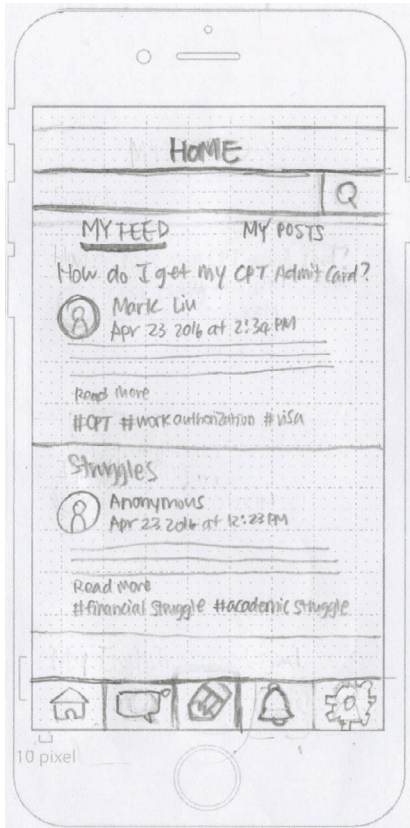 HOME
MY FEED
MY POSTS
How do I get my CPT Admit Card?
Mark Liu
Apr 23 2016 at 2:34 PM
Read More
#CPT #work authorization #visa
Struggles
Anonymous
Apr 23 2016 at 12:23 PM
Read more
#financial struggle #academic struggle
10 pixel